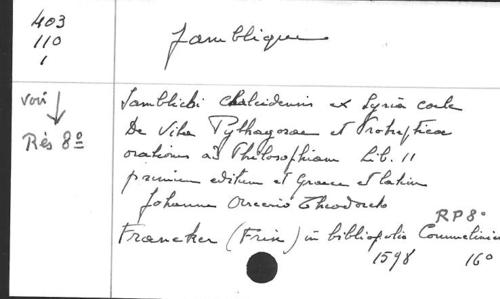 403
110
1
Jamblique
voir
Rés 8º
Jamblichi Chalcidensis ex Syria coele
De Vita Pythagorae et Protrepticae
orationes ad Philosophiam Lib. II
primum editum et Graece et latine
Johanne Arcerio Theodoreto
RP 8º
Franeker (Frise) in bibliopolio Commeliniano
1598 16º